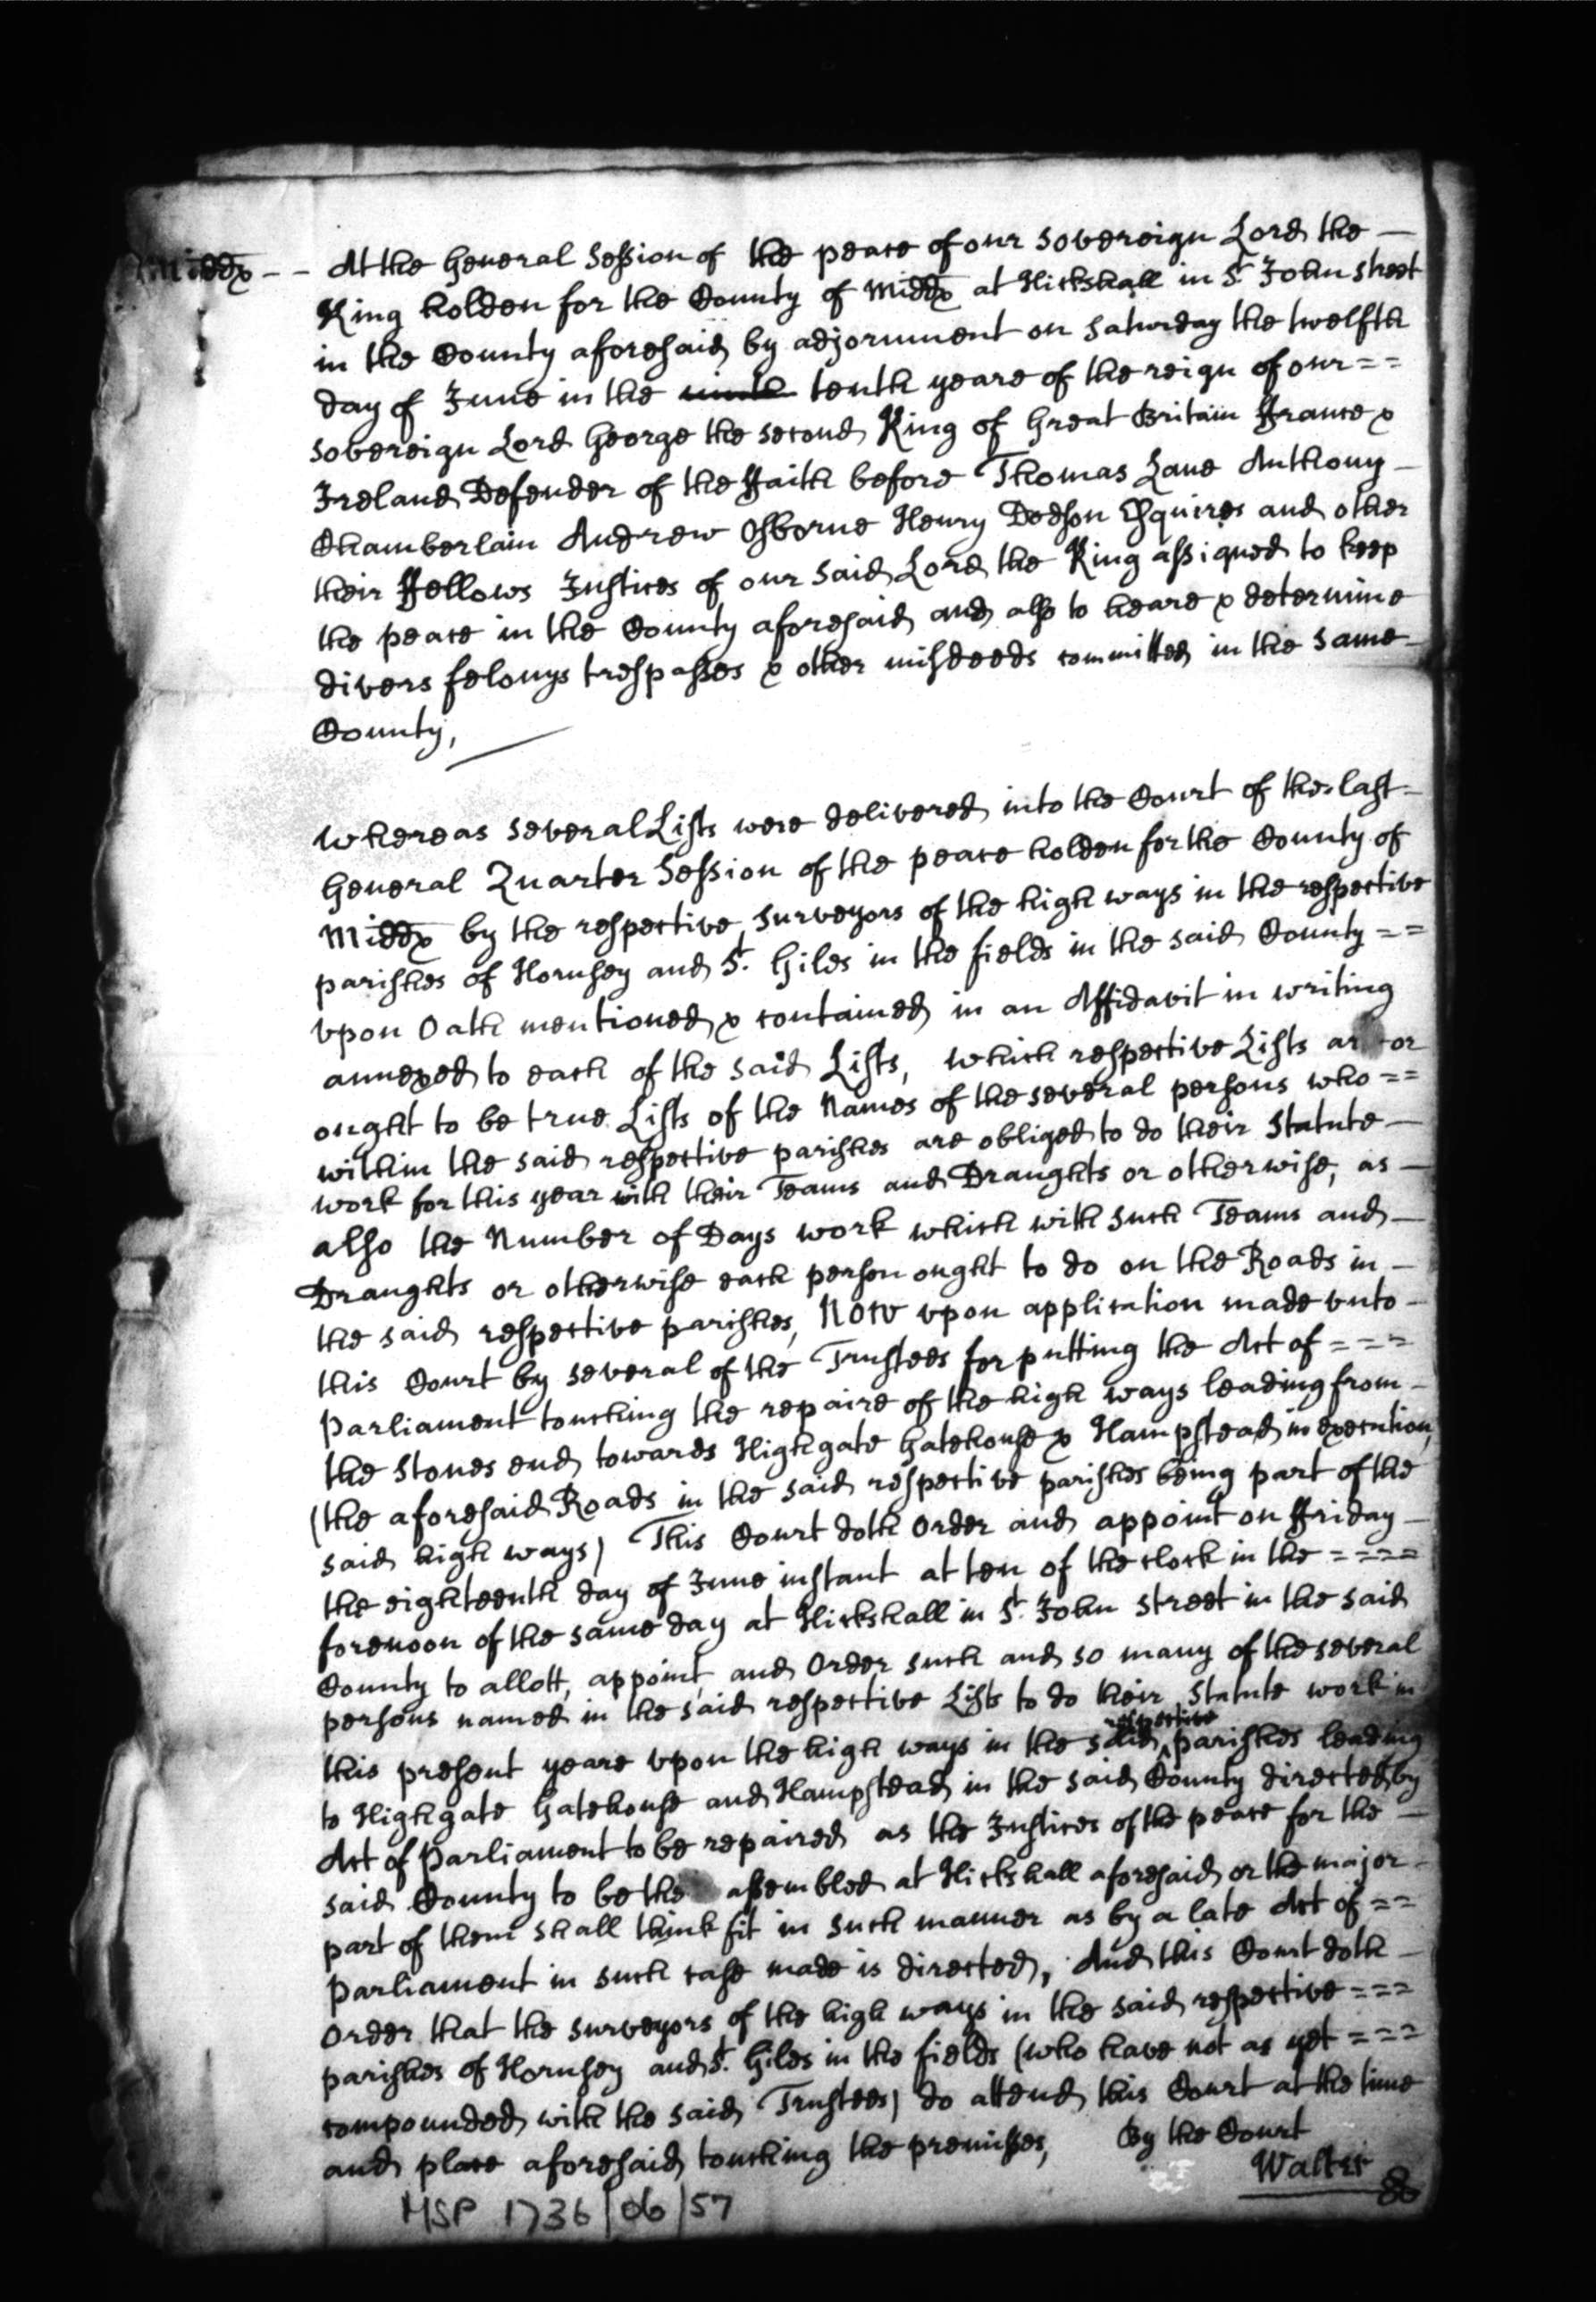 Middx - - At the General Session of the peace of our Sovereign Lord the -
King holden for the County of Middx at Hickshall in St. John Street
in the County aforesaid by adjornment on Saturday the twelfth
day of June in the ninth tenth yeare of the reign of our = =
Sovereign Lord George the second King of Great Britain ffrance &
Ireland Defender of the ffaith before Thomas Lane Anthony -
Chamberlain Andrew Osborne Henry Dodson Esquires and other
their ffellows Justices of our said Lord the King assigned to keep
the peace in the County aforesaid and also to heare & determine
divers felonys trespasses & other misdeeds committed in the same -
County,
Whereas several Lists were delivered into the Court of the last -
General Quarter Session of the peace holden for the County of
Middx by the respective Surveyors of the high ways in the respective
parishes of Hornsey and St. Giles in the fields in the said County = =
vpon Oath mentioned & contained in an Affidavit in writing
annexed to each of the said Lists, which respective Lists are or
ought to be true Lists of the Names of the several persons who = =
within the said respective parishes are obliged to do their Statute -
work for this year with their Teams and Draughts or otherwise, as -
also the Number of Days work which with such Teams and -
Draughts or otherwise each person ought to do on the Roads in -
the said respective parishes, Now vpon application made vnto -
this Court by several of the Trustees for putting the Act of = = =
Parliament touching the repaire of the high ways leading from -
the Stones end towards Highgate Gatehouse & Hampstead in execution,
(the aforesaid Roads in the said respective parishes being part of the
said high ways) This Court doth Order and appoint on ffriday -
the eighteenth day of June instant at ten of the clock in the = = = =
forenoon of the same day at Hickshall in St. John Street in the said
County to allott, appoint and Order such and so many of the several
persons named in the said respective Lists to do their Statute work in
this present yeare vpon the high ways in the said ^respective parishes leading
to Highgate Gatehouse and Hampstead in the said County directed by
Act of Parliament to be repaired as the Justices of the peace for the -
said County to be the assembled at Hickshall aforesaid or the major -
part of them shall think fit in such manner as by a late Act of = =
Parliament in such case made is directed, And this Court doth -
Order that the Surveyors of the high ways in the said respective = = =
parishes of Hornsey and St. Giles in the fields (who have not as yet = = =
compounded with the said Trustees) do attend this Court at the time
and place aforesaid touching the premisses, By the Court
Walter
MSP 1736/06/57